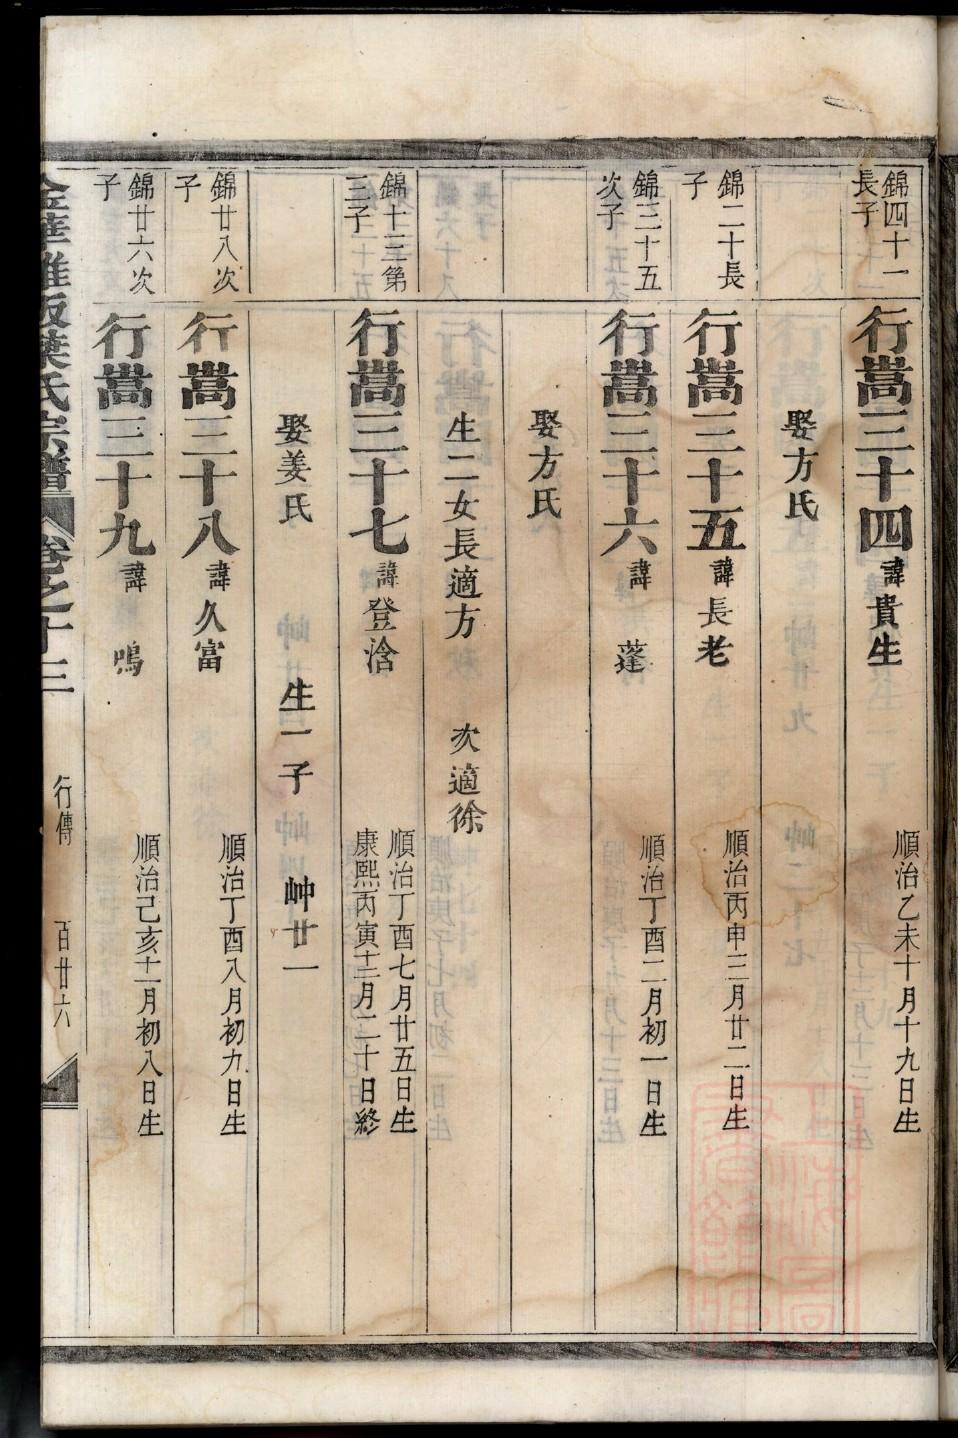 錦四十一
長子
行嵩三十四諱貴生
順治乙未十月十九日生
娶方氏
錦二十長
子
行嵩三十五諱長老
順治丙申三月廿二日生
錦三十五
次子
行嵩三十六諱蓬
順治丁酉二月初一日生
娶方氏
生二女長適方 次適徐
錦十三第
三子
行嵩三十七諱登淦
順治丁酉七月廿五日生
康熙丙寅十二月二十日終
娶姜氏 生一子 岫廿一
錦廿八次
子
行嵩三十八諱久富
順治丁酉八月初九日生
錦廿六次
子
行嵩三十九諱鳴
順治己亥十一月初八日生
金華雅畈葉氏宗譜 卷之十三 行傳 百廿六